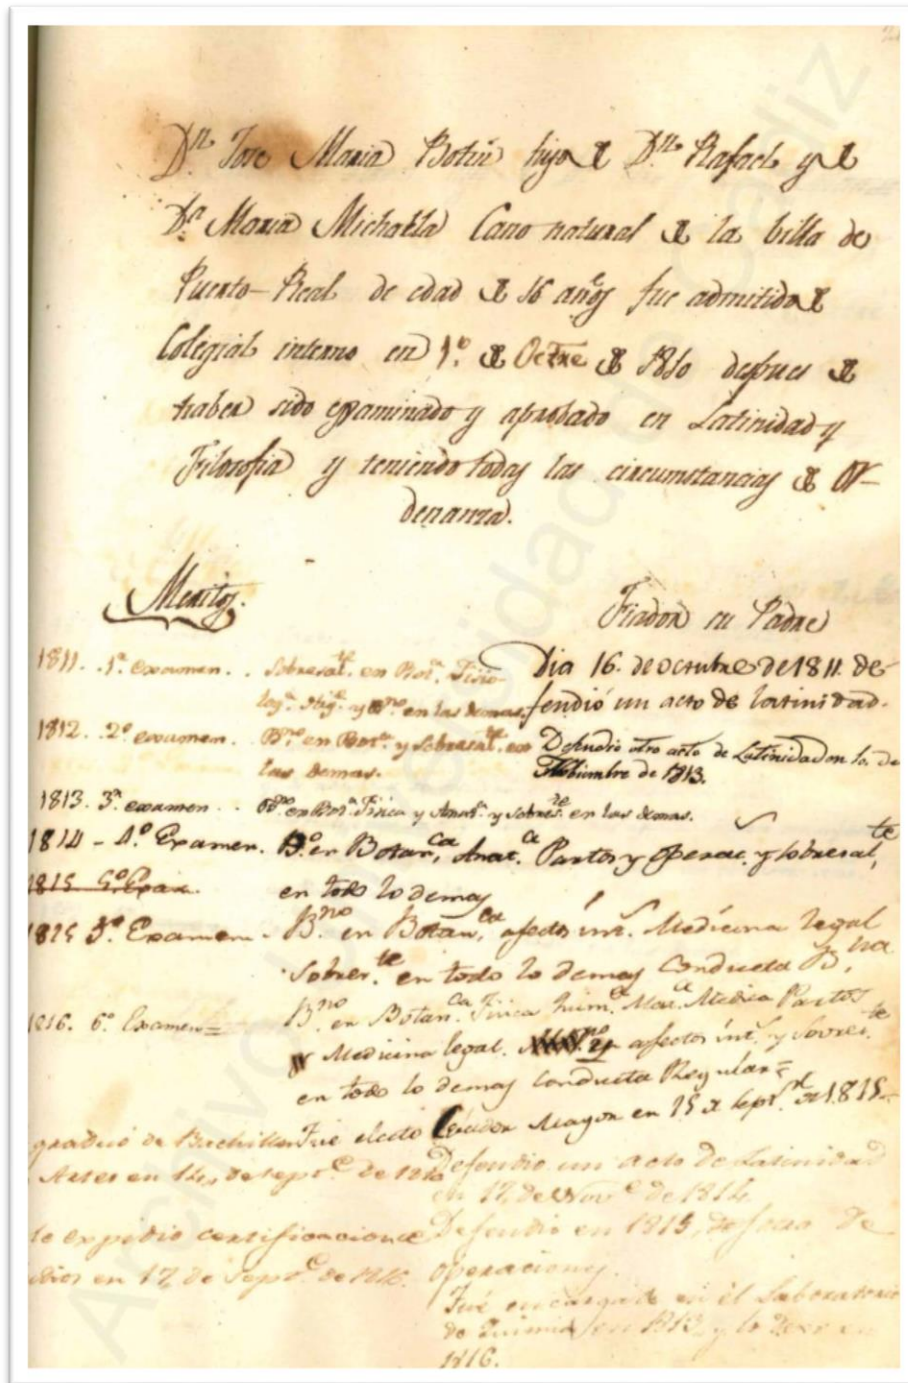 Dn. Jose Maria Botin hijo de Dn. Rafael y de
Da. Maria Michaela Cano natural de la billa de
Puerto-Real de edad de 16 años fue admitido de
Colegial interno en 1º. de Octre de 1810 despues de
haber sido examinado y aprobado en Latinidad y
Filosofia y teniendo todas las circumstancias de Or-
denanza.
Meritos.
Fiador su Padre
1811. 1º. examen. Sobresalte. en Bota. Fisio-
loga. Higa. y Bno. en las demas.
1812. 2º examen. Bno. en Bota. y Sobresalte. en
las demas.
Dia 16. de octubre de 1811. de-
fendió un acto de latinidad.
Defendio otro acto de Latinidad en 10. de
Nobiembre de 1813.
1813. 3º. examen Bno. en Bota. Fisica y Anata. y sobreste. en las demas.
1814 - 4º. Examen. Bo. en Botanca. Anata. Partos y Operac. y sobresalte,
en todo lo demas
1815 5º. Exam.
1815 5º. Examen. Bno. en Botanca, afectos int. Medicina legal
Sobreste. en todo lo demas Conducta Bna.
1816. 6º. Examen = Bno. en Botanca. Fisica Mata. Medica Partos
Medicina legal. afectos int. y sovreste.
en todo lo demas Conducta Regular =
Fue electo Mayor en 15 de Septe. de 1815.
graduó de Bachiller
Artes en 14, de septe. de 1816
le expidio certificacion de
en 17, de Septe. de 1816.
Defendio un acto de Latinidad
en 17 de Nove. de 1814.
Defendio en 1815, de
operaciones.
Fué encargado en el Laboratorio
de Quimica en 1813, y lo en
1816.